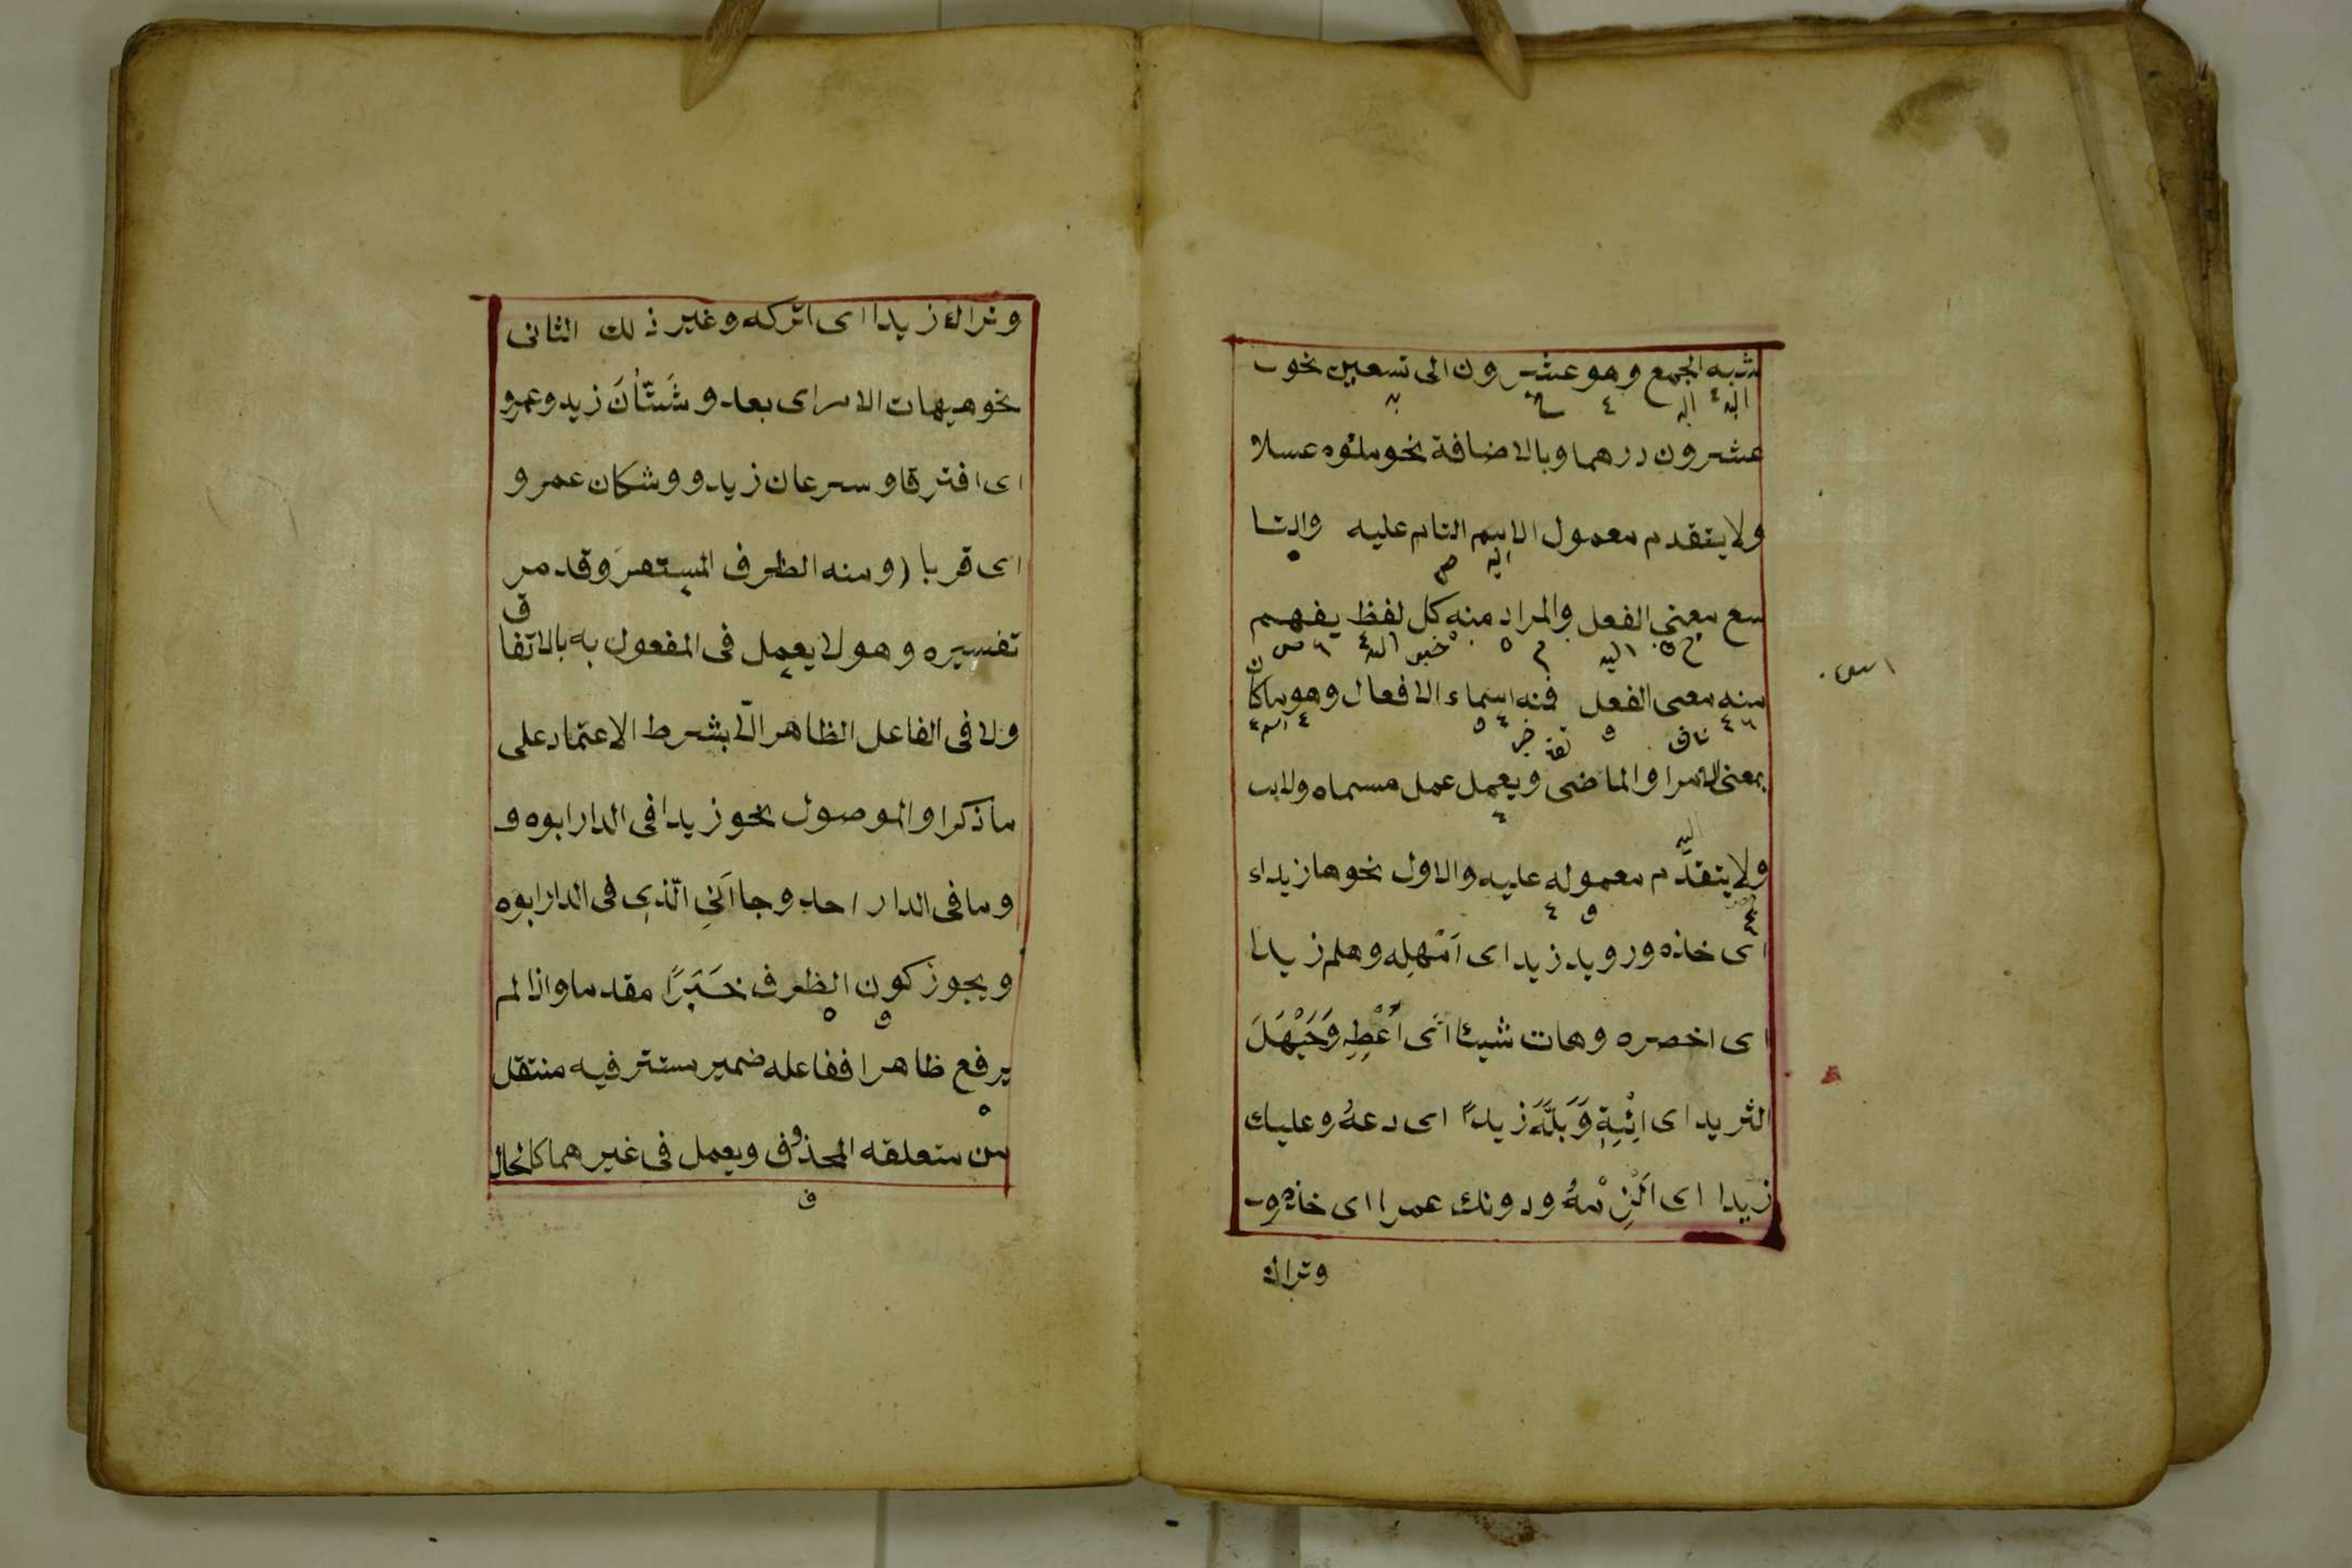 شبه الجمع وهو عشرون الى تسعين نحو
عشرون درهما وبالاضافة نحو ملئوه عسلا
ولا يتقدم معمول الاسم التام عليه والتا
سع معنى الفعل والمراد منه كل لفظ يفهم
منه معنى الفعل فمنه اسماء الافعال وهو ما كان
بمعنى الامر او الماضى ويعمل عمل مسماه ولا
ولا يتقدّم معموله عليه والاول نحو ها زيدا
اى خذه ورويد زيدا اى اَمْهِله وهلم زيدا
اى احضره وهات شيئا اى اَعْطِهِ وَحَيَّهَلَ
الثريد اى ائْتِهِ وَبَلْهَ زيداً اى دعهُ وعليك
زيدا اى اَلْزِمْهُ ودونك عمرا اى خذه و
وتراك
وتراك زيدا اى اتركه وغير ذلك الثانى
نحو هيهات الامر اى بعد وشَتَّانَ زيد وعمرو
اى افترقا وسرعان زيد ووشكان عمرو
اى قربا ومنه الظرف المستقر وقد مر
تفسيره وهو لا يعمل فى المفعول به بالاتفاق
ولا فى الفاعل الظاهر الّا بشرط الاعتماد على
ما ذكر او الموصول نحو زيد افى الدار ابوه و
وما فى الدار احد وجاانى الّذى فى الدار ابوه
ويجوز كون الظرف خَبَرًا مقدما واذا لم
يرفع ظاهرا ففاعله ضمير مستتر فيه منتقل
من متعلقه المحذوف ويعمل فى غيرهما كالحال